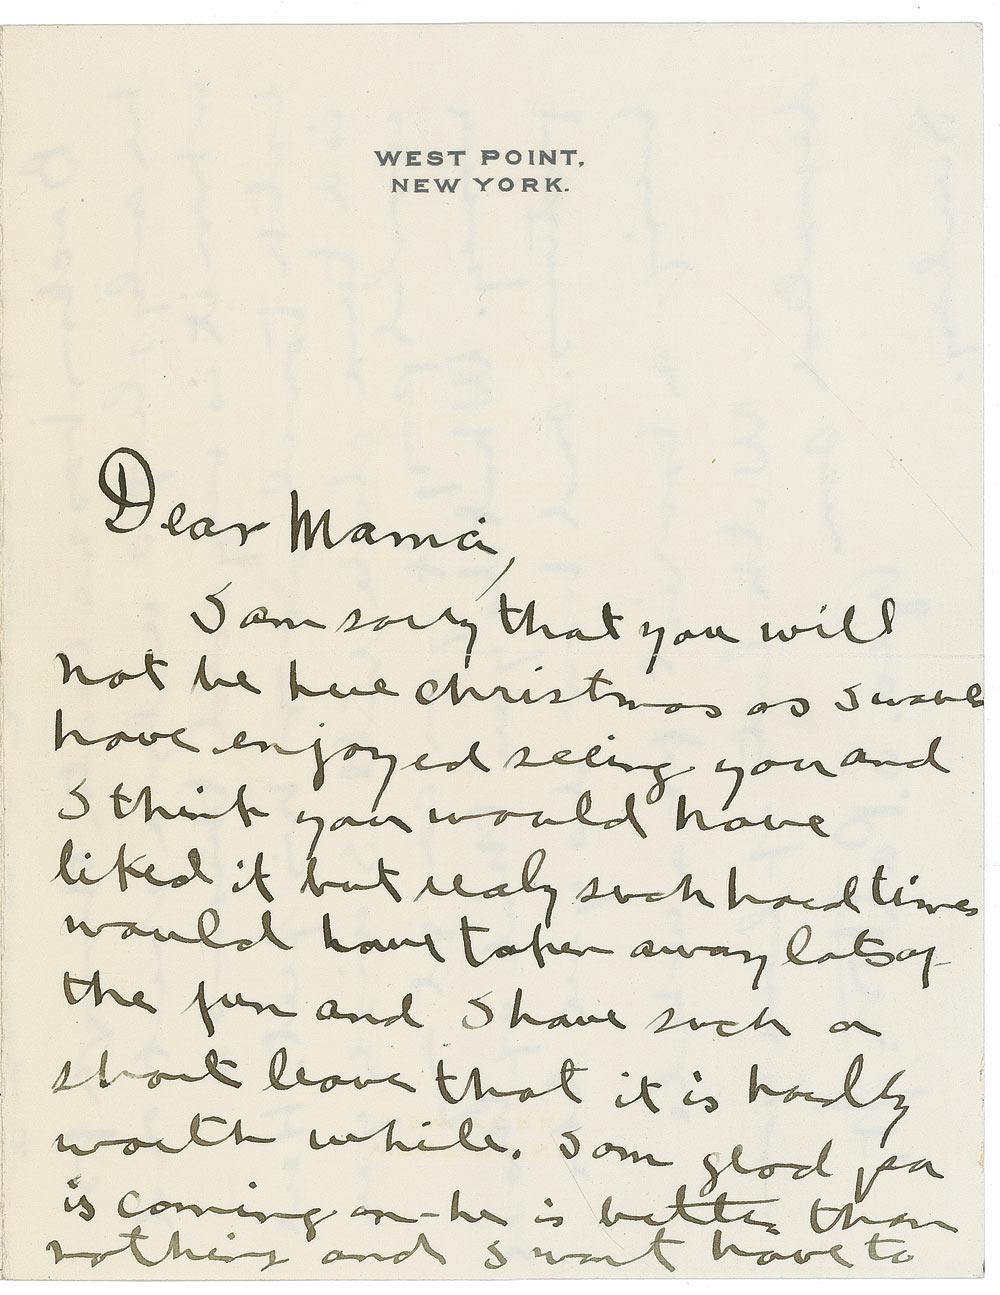 WEST POINT,
NEW YORK.
Dear Mama,
I am sorry that you will
not be here christmas as I would
have enjoyed seeing you and
I think you would have
liked it but realy such hard times
would have taken away lots of
the fun and I have such a
short leave that it is hardly
worth while. I am glad pa
is coming on - he is better than
nothing and I wont have to